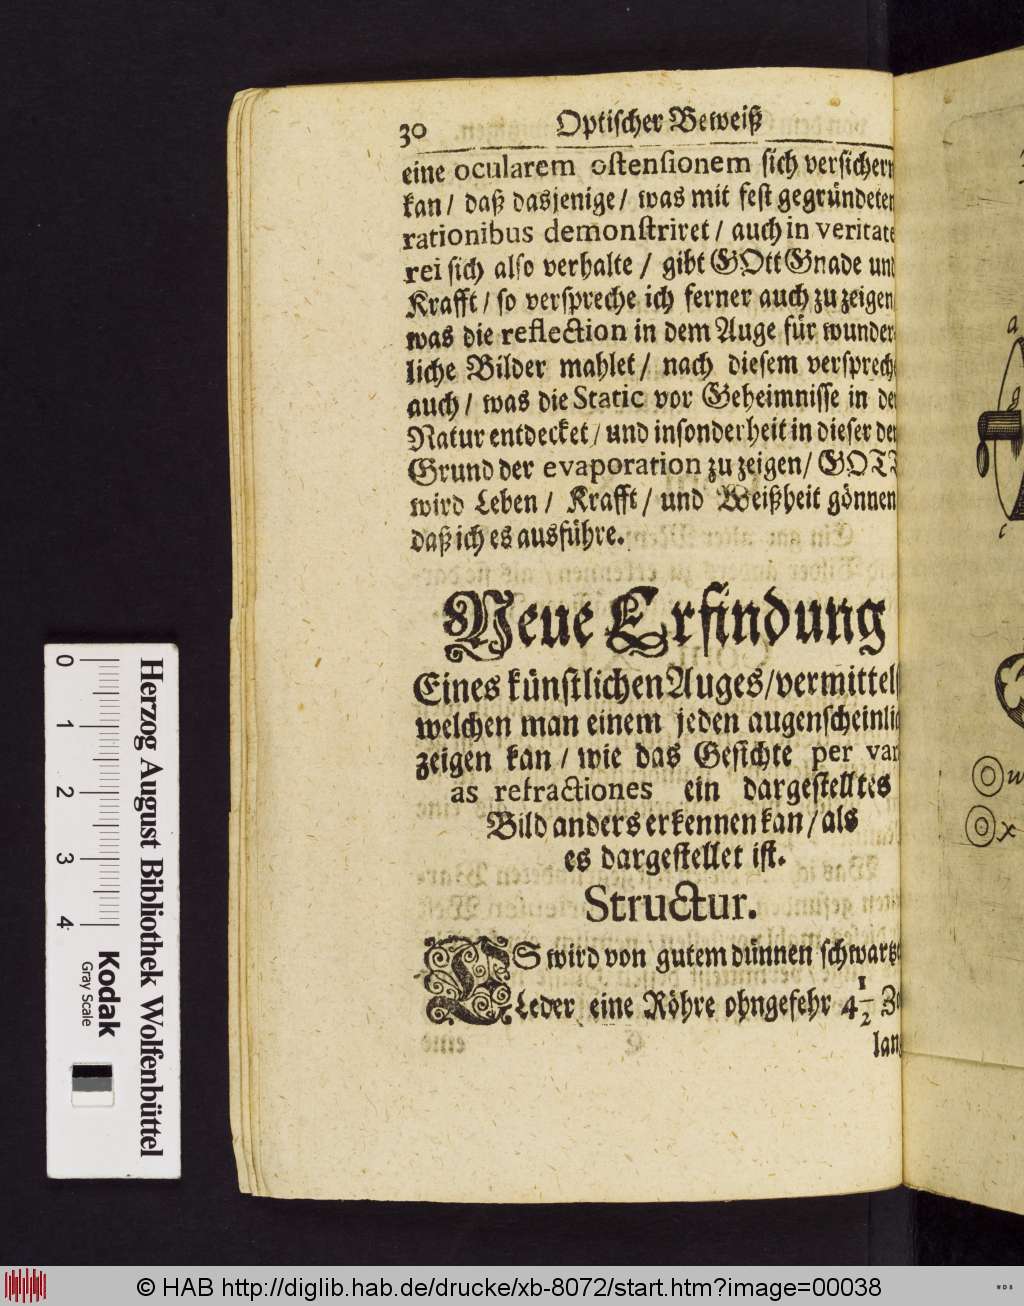 30 Optischer Beweiß
eine ocularem ostensionem sich versichern
kan / daß dasjenige / was mit fest gegründeten
rationibus demonstriret / auch in veritate
rei sich also verhalte / gibt GOtt Gnade und
Krafft / so verspreche ich ferner auch zu zeigen
was die reflection in dem Auge für wunder
liche Bilder mahlet / nach diesem versprech
auch / was die Static vor Geheimnisse in de
Natur entdecket / und insonderheit in dieser de
Grund der evaporation zu zeigen / GOTT
wird Leben / Krafft / und Weißheit gönnen
daß ich es ausführe.
Neue Erfindung
Eines künstlichen Auges / vermittels
welchen man einem jeden augenscheinlich
zeigen kan / wie das Gesichte per vari
as refractiones ein dargestelltes
Bild anders erkennen kan / als
es dargestellet ist.
Structur.
ES wird von gutem dünnen schwartze
Leder eine Röhre ohngefehr 4 1/2 Zo
lang
a
g
c
w
x
0 1 2 3 4
Herzog August Bibliothek Wolfenbüttel
Kodak
Gray Scale
© HAB http://diglib.hab.de/drucke/xb-8072/start.htm?image=00038